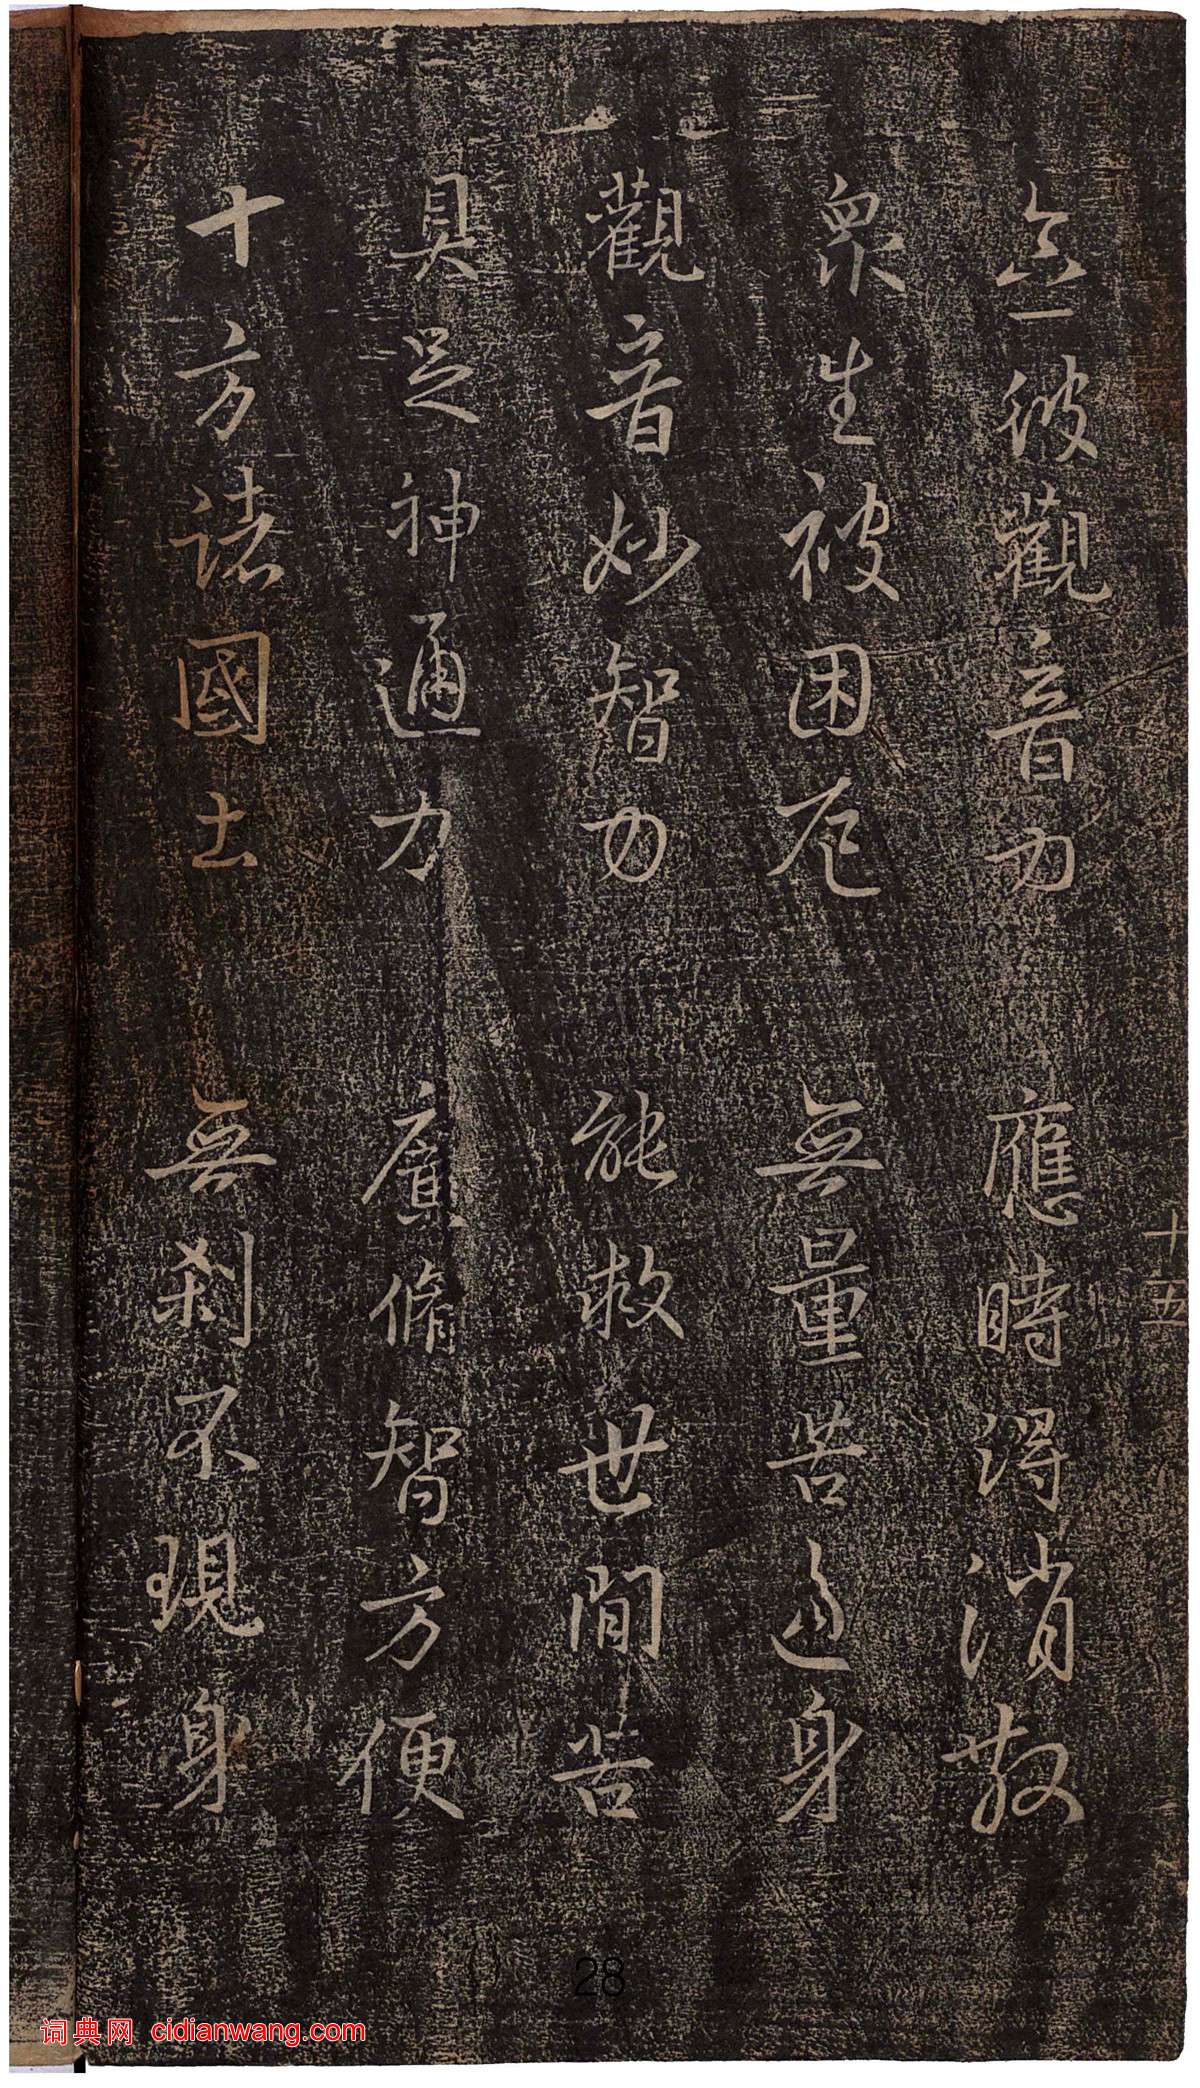 念彼觀音力 應時得消散
眾生被困厄 無量苦逼身
觀音妙智力 能救世間苦
具足神通力 廣脩智方便
十方諸國土 無刹不現身
十五
28
词典网 cidianwang.com